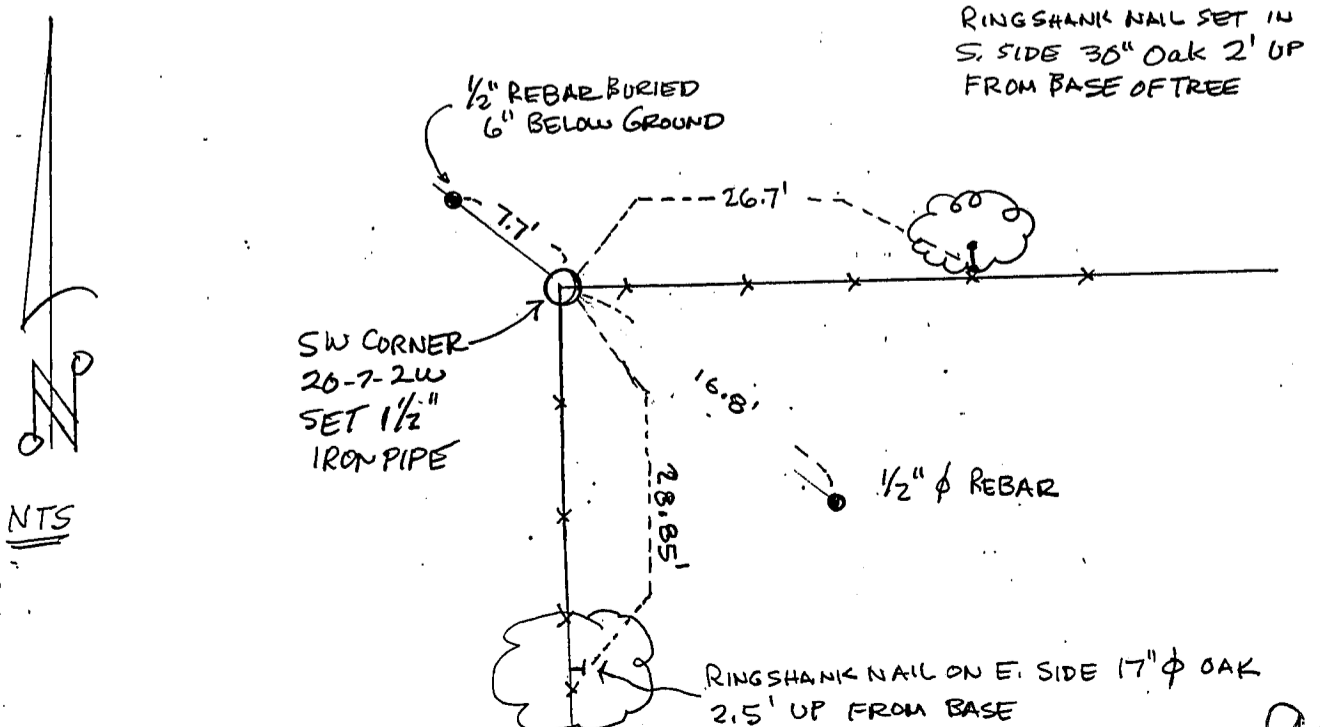 RINGSHANK NAIL SET IN
S. SIDE 30" Oak 2' UP
FROM BASE OF TREE
1/2" REBAR BURIED
6" BELOW GROUND
26.7'
7.7'
SW CORNER
20-7-2W
SET 1 1/2"
IRON PIPE
16.8'
28.85'
1/2" ϕ REBAR
N
NTS
RINGSHANK NAIL ON E. SIDE 17" ϕ OAK
2.5' UP FROM BASE